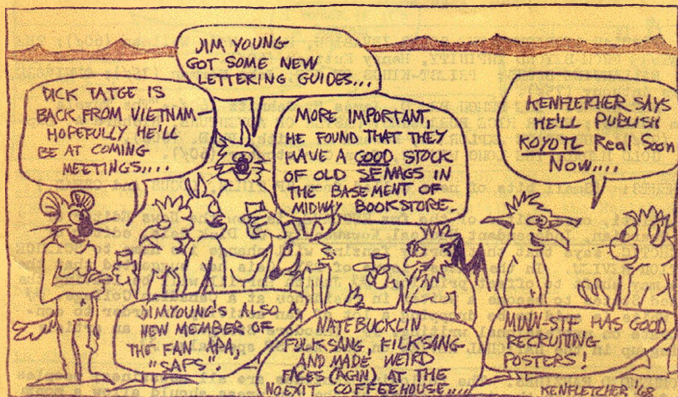 JIM YOUNG
GOT SOME NEW
LETTERING GUIDES...
DICK TATGE IS
BACK FROM VIETNAM—
HOPEFULLY HE'LL
BE AT COMING
MEETINGS....
MORE IMPORTANT,
HE FOUND THAT THEY
HAVE A GOOD STOCK
OF OLD SFMAGS IN
THE BASEMENT OF
MIDWAY BOOKSTORE.
KENFLETHER SAYS
HE'LL PUBLISH
KOYOTL Real Soon
Now....
JIMYOUNG'S ALSO A
NEW MEMBER OF
THE FAN APA,
"SAPS".
NATEBUCKLIN
FOLKSANG, FILKSANG
AND MADE WEIRD
FACES (AGIN) AT THE
NO EXIT COFFEEHOUSE....
MINN-STF HAS GOOD
RECRUITING
POSTERS!
KENFLETCHER '68